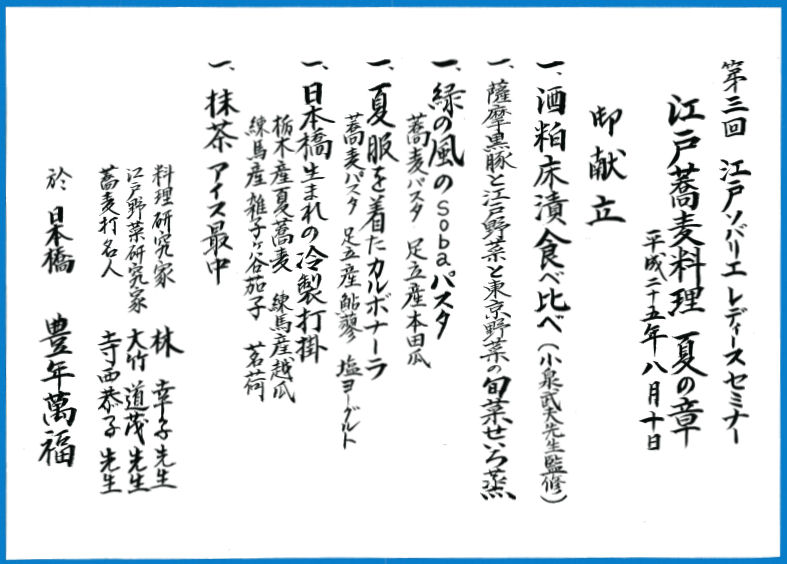 第三回 江戸ソバリエ レディースセミナー
江戸蕎麦料理 夏の章
平成二十五年八月十日
御献立
一、酒粕床漬食べ比べ(小泉武夫先生監修)
一、薩摩黒豚と江戸野菜と東京野菜の旬菜せいろ蒸
一、緑の風のsobaパスタ
蕎麦パスタ 足立産本田瓜
一、夏服を着たカルボナーラ
蕎麦パスタ 足立産鮎蓼 塩ヨーグルト
一、日本橋生まれの冷製打掛
栃木産夏蕎麦 練馬産越瓜
練馬産雑子ヶ谷茄子 茗荷
一、抹茶アイス最中
料理研究家 林 幸子先生
江戸野菜研究家 大竹 道茂先生
蕎麦打名人 寺西恭子先生
於 日本橋 豊年萬福